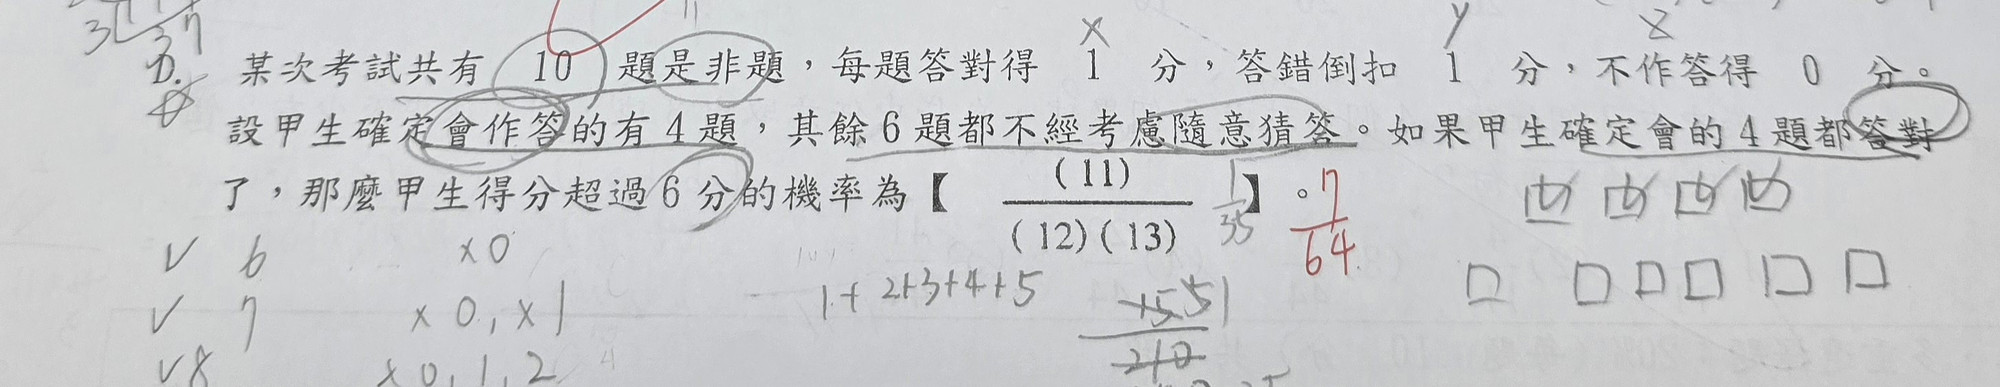 3 1 1
3 7
11
x y z
D. 某次考試共有 10 題是非題，每題答對得 1 分，答錯倒扣 1 分，不作答得 0 分。
設甲生確定會作答的有 4 題，其餘 6 題都不經考慮隨意猜答。如果甲生確定會的 4 題都答對
了，那麼甲生得分超過 6 分的機率為【 (11) / (12)(13) 】。 1/35 7/64
✓ 6 ×0
✓ 7 ×0, ×1 1+2+3+4+5
✓8 ×0, 1, 2